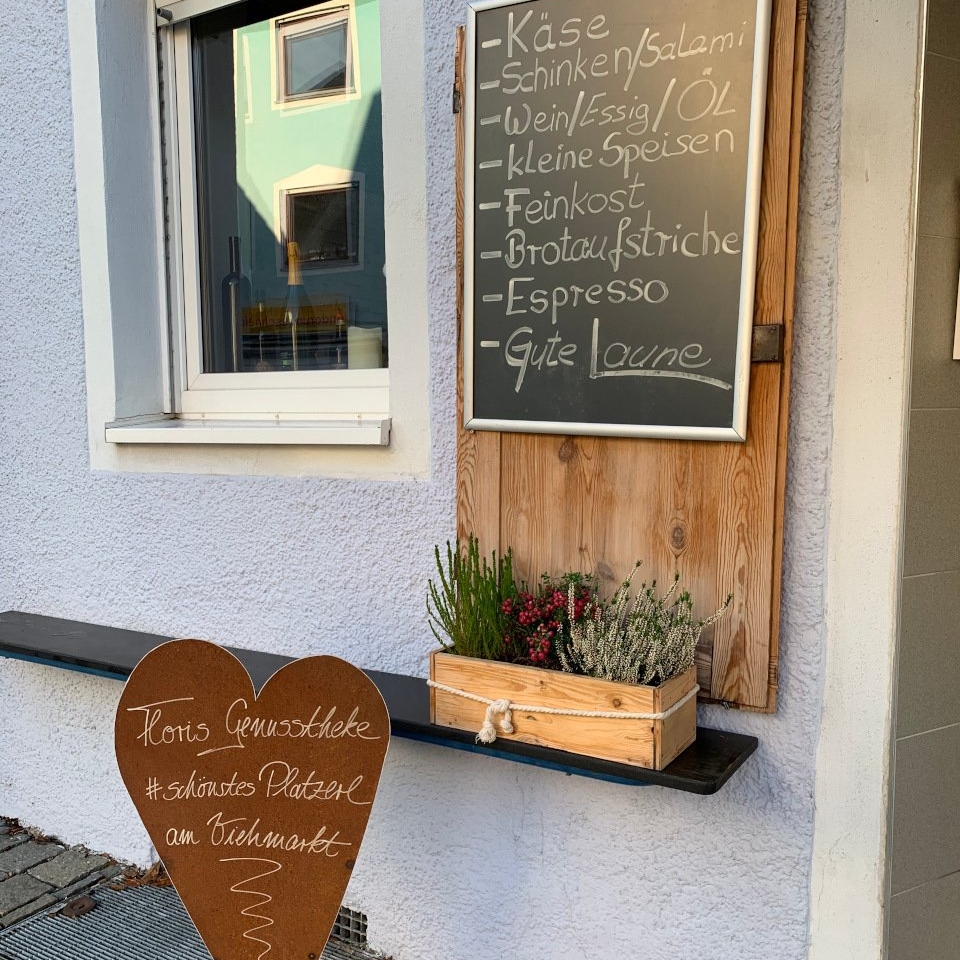 -Käse
-Schinken/Salami
-Wein/Essig/ÖL
-kleine Speisen
-Feinkost
-Brotaufstriche
-Espresso
-Gute Laune
Floris Genusstheke
#schönstes Platzerl
am Viehmarkt